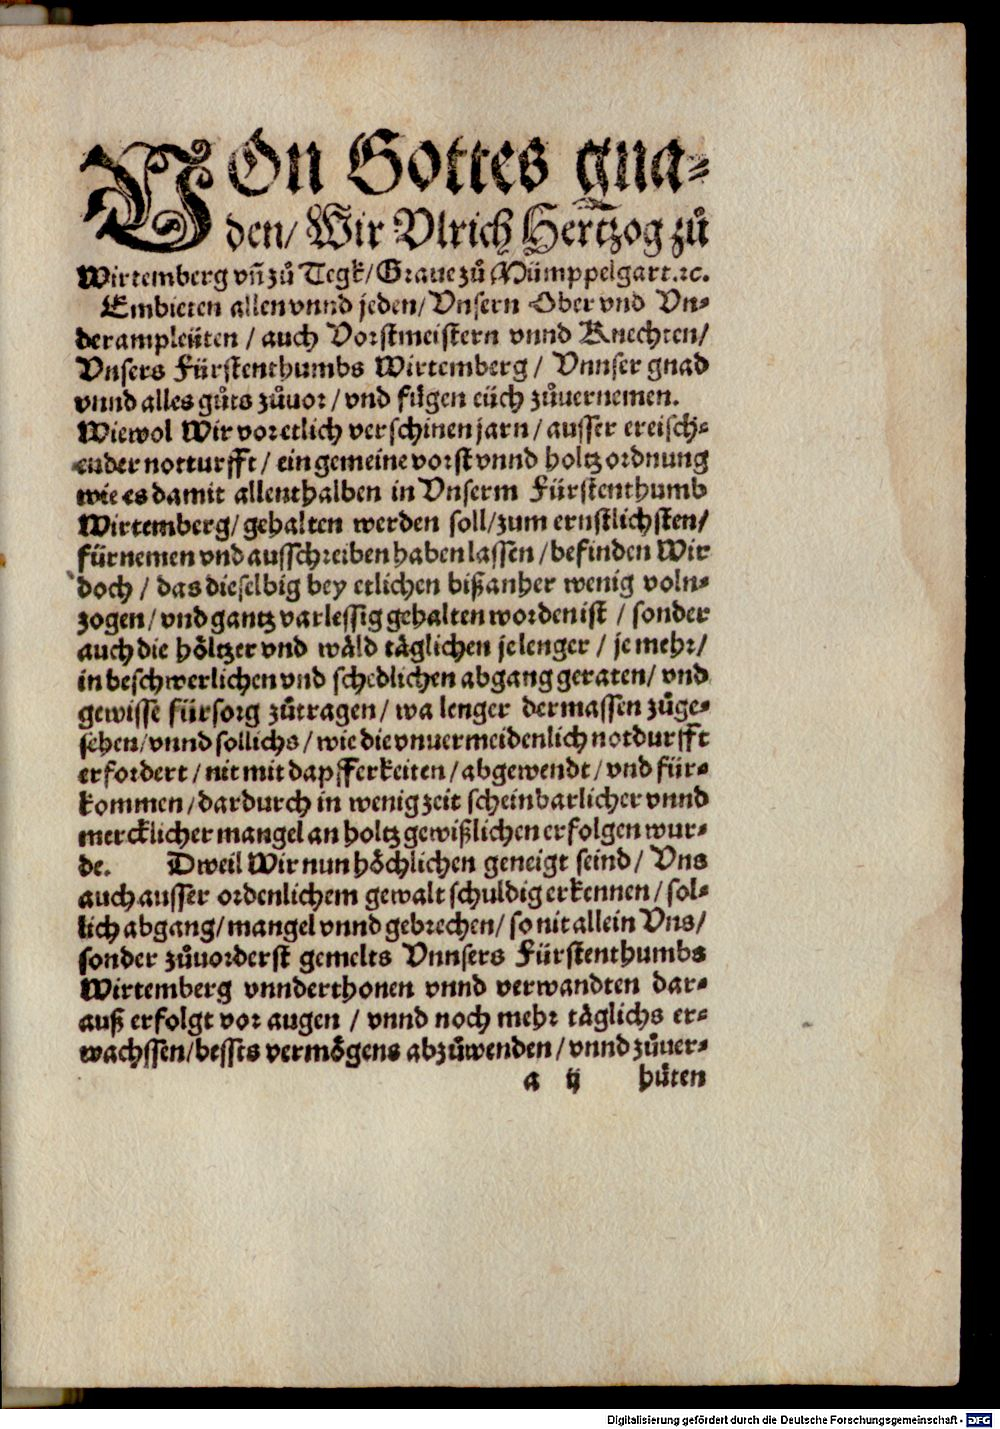 VOn Gottes gna⸗
den/ Wir Vlrich Hertzog zů
Wirtemberg vñ zů Tegk/ Graue zů Mümppelgart.ꝛc.
Embieten allen vnnd jeden/ Vnsern Ober vnd Vn⸗
derampleüten / auch Vorstmeistern vnnd Knechten/
Vnsers Fürstenthumbs Wirtemberg / Vnnser gnad
vnnd alles gůts zůuor / vnd fůgen eüch zůuernemen.
Wiewol Wir vor etlich verschinen jarn / ausser ereisch⸗
ender notturfft / ein gemeine vorst vnnd holtz ordnung
wie es damit allenthalben in Vnserm Fürstenthumb
Wirtemberg/ gehalten werden soll/ zum ernstlichsten/
fürnemen vnd ausschreiben haben lassen / befinden Wir
doch / das dieselbig bey etlichen bißanher wenig voln⸗
zogen / vnd gantz varlessig gehalten worden ist / sonder
auch die höltzer vnd wäld täglichen je lenger / je mehr/
in beschwerlichen vnd schedlichen abgang geraten/ vnd
gewisse fürsorg zůtragen / wa lenger dermassen zůge⸗
sehen/ vnnd sollichs / wie die vnuermeidenlich notdurfft
erfordert / nit mit dapfferkeiten / abgewendt / vnd für⸗
kommen / dardurch in wenig zeit scheinbarlicher vnnd
mercklicher mangel an holtz gewißlichen erfolgen wur⸗
de. Dweil Wir nun höchlichen geneigt seind / Vns
auch ausser ordenlichem gewalt schuldig erkennen / sol⸗
lich abgang/ mangel vnnd gebrechen/ so nit allein Vns/
sonder zůuorderst gemelts Vnnsers Fürstenthumbs
Wirtemberg vnnderthonen vnnd verwandten dar⸗
auß erfolgt vor augen / vnnd noch mehr täglichs er⸗
wachssen/ bessts vermögens abzůwenden / vnnd zůuer⸗
a ij hůten
Digitalisierung gefördert durch die Deutsche Forschungsgemeinschaft - DFG